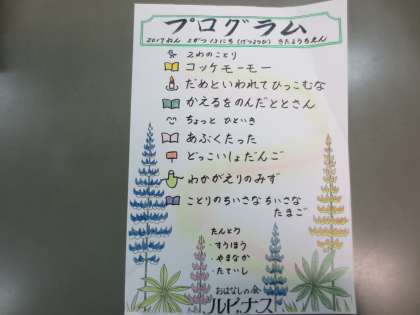 プログラム
2017ねん 2がつ13にち(げつようび) きたようちえん
2わのことり
コッケモーモー
だめといわれてひっこむな
かえるをのんだととさん
ちょっと ひといき
あぶくたった
どっこいしょだんご
わかがえりのみず
ことりのちいさなちいさな
たまご
たんとう
・すうほう
・やまなか
・たていし
おはなしの会
ルピナス